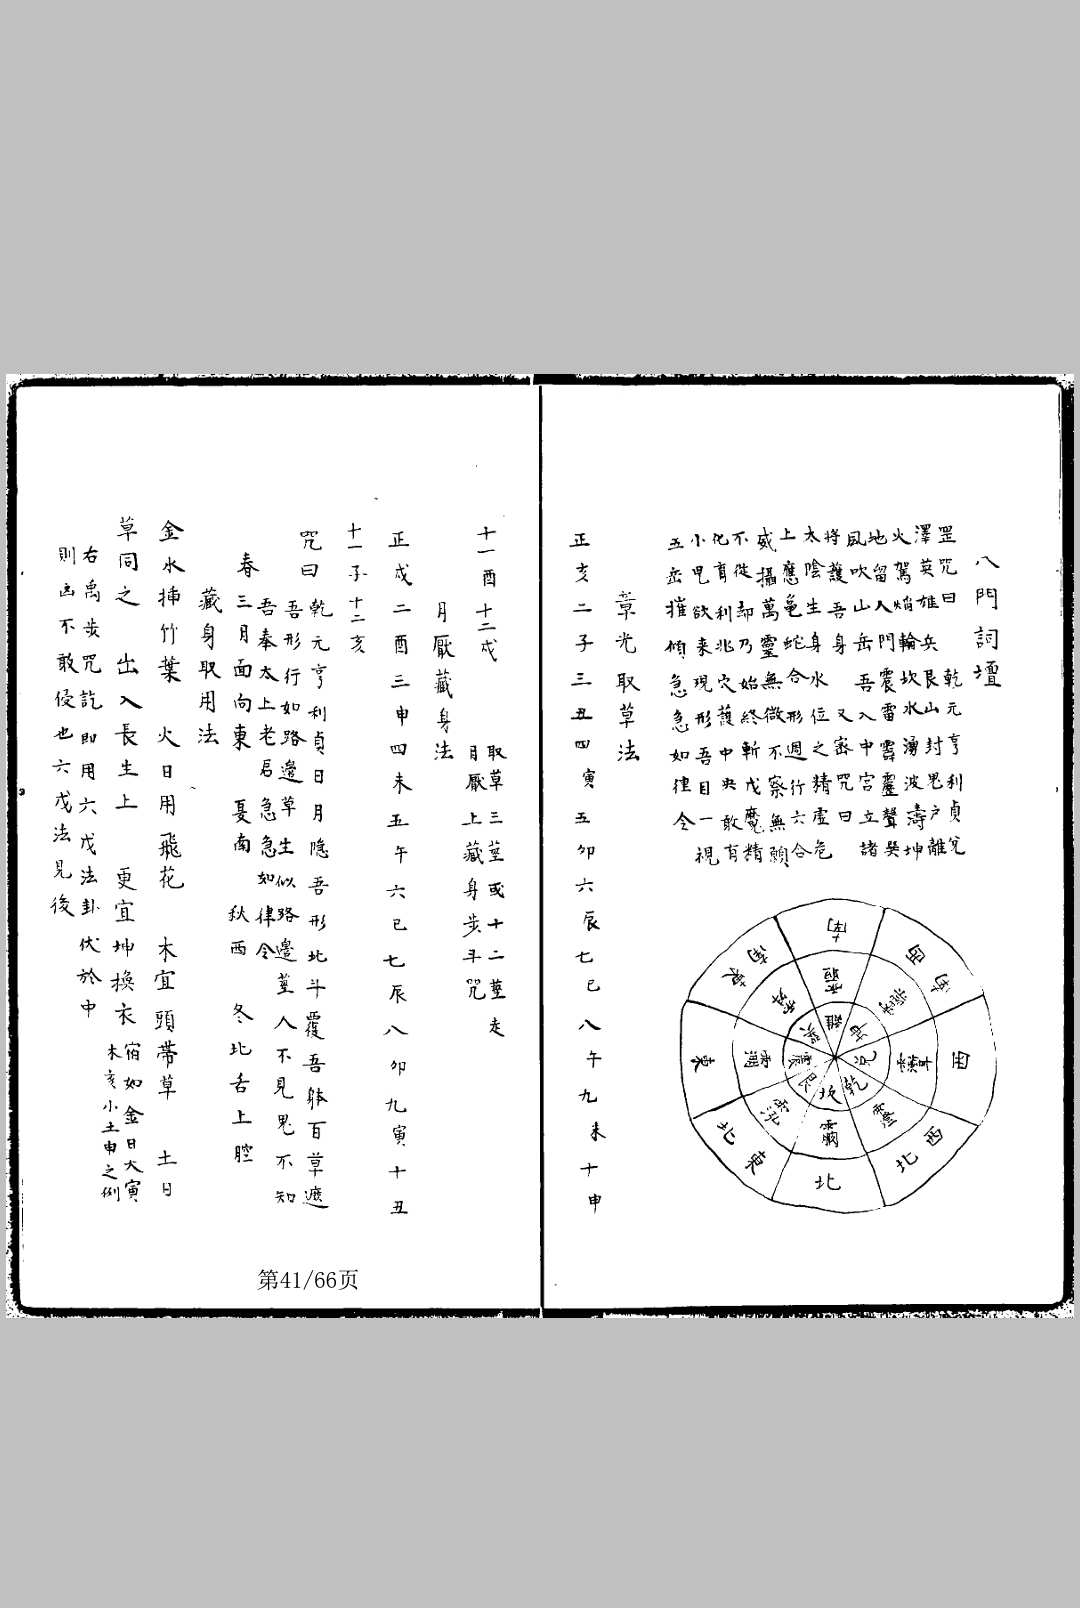 八門詞壇
罡咒曰 乾元亨利貞兌
澤英雄兵艮山封鬼户離
火駕焰輪坎水湧波濤坤
地留人門震雷霹靂聲巽
風吹山岳吾入中宮立諸
將護吾身 又密咒曰
太陰生身水位之精虛危
上應龜蛇合形週行六合
威攝萬靈無微不察無願
不從劫乃始終斬戊魔精
化育利兆穴護中央敢有
小鬼欲來現形吾目一視
五岳摧傾急急如律令
南
西南
西
西北
北
東北
東
東南
離
坤
兌
乾
坎
艮
震
巽
章光取草法
正亥二子三丑四寅五卯六辰七巳八午九未十申
十一酉十二戌
月厭藏身法
取草三莖或十二莖走
月厭上藏身步斗咒
正戌二酉三申四未五午六巳七辰八卯九寅十丑
十一子十二亥
咒曰
乾元亨利貞日月隐吾形北斗覆吾躰百草遮
吾形行如路邊草生似路邊莖人不見鬼不知
吾奉太上老君急急如律令
春三月面向東 夏南 秋西 冬北舌上腔
藏身取用法
金水揷竹葉 火日用飛花 木宜頭帯草 土日
草同之 出入長生上 更宜坤換衣
宿如金日大寅
木亥小土申之例
右禹步咒訖即用六戊法卦伏於中
則凶不敢侵也六戊法見後
第41/66页